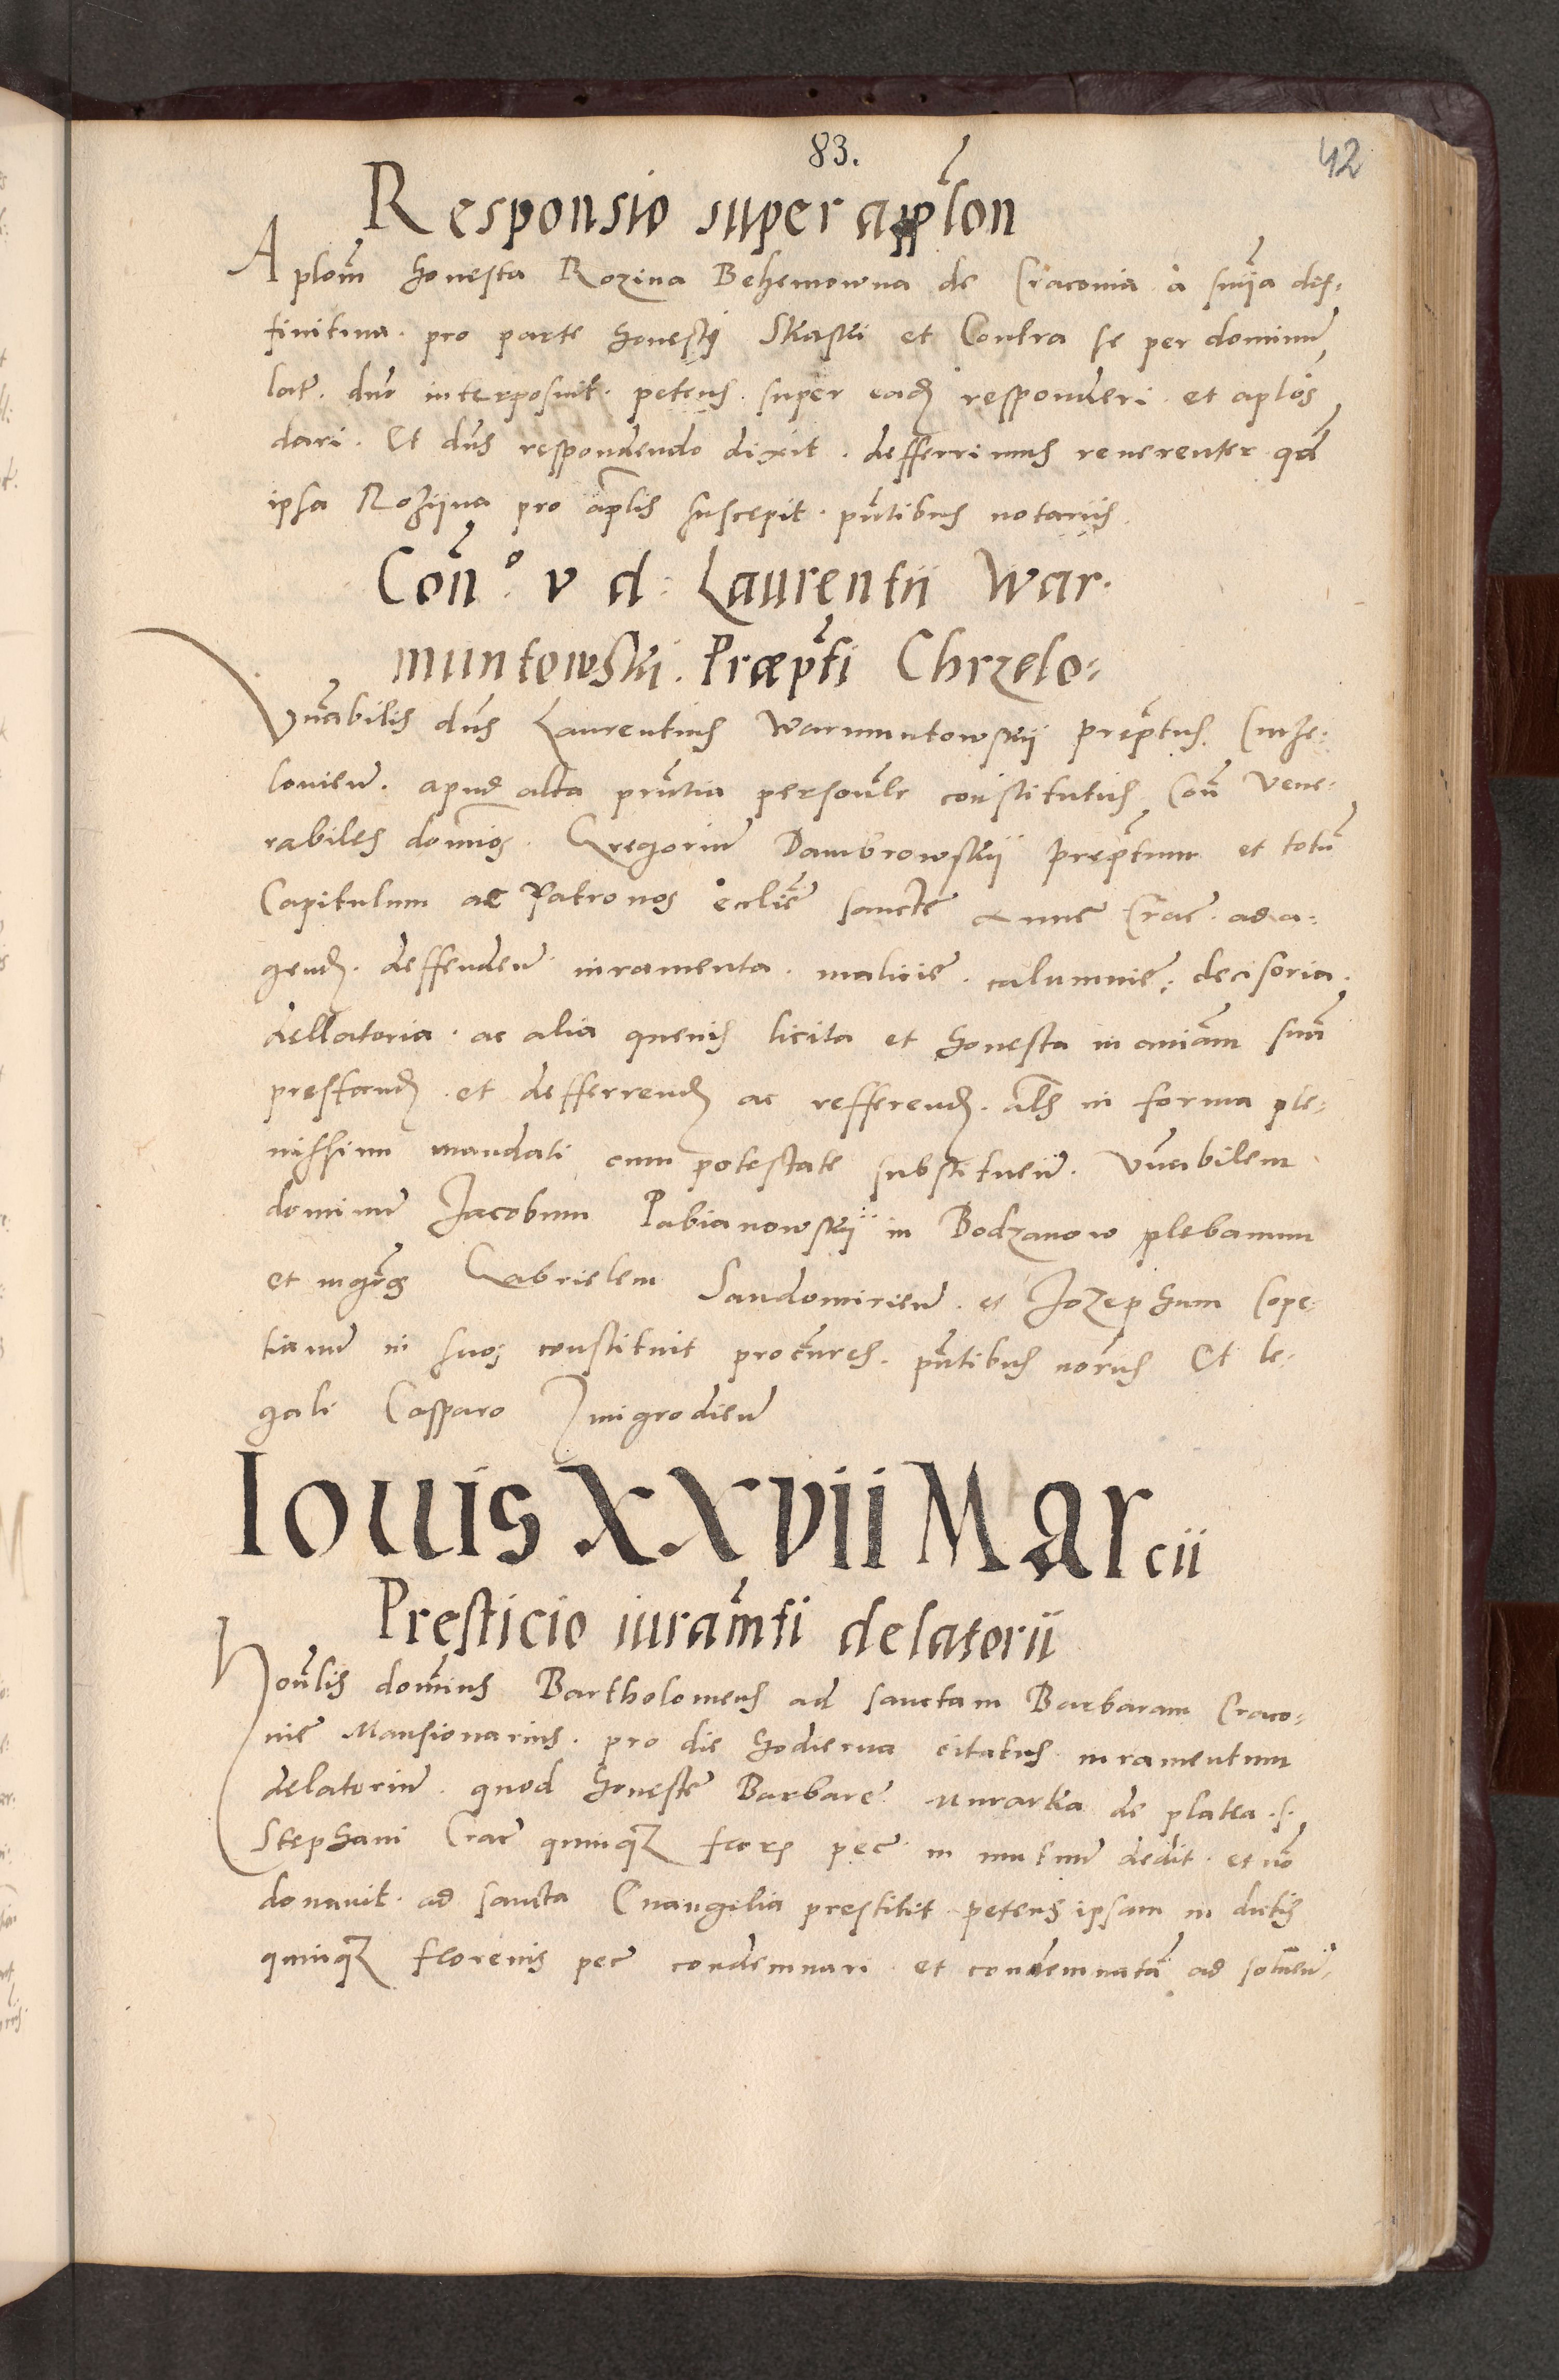 83.
42
Responsio super applon
Aplom honesta Rozina Behemowna de Cracovia a sniia def-
finitiva. pro parte honesti Skaski et Contra se per dominum
lat. dno interposuit. petens. super eadem responderi. et aplos
dari. Et dns respondendo dixit. defferrimus reverenter qd
ipsa Roziina pro aplis suscepit. pntibus notariis.
Cono. v d. Laurentii War-
muntowski. Præpti Chrzelo-
Vnabilis dns Laurentius Warmuntowskii preptus. Curze-
lovien. apud acta pntia personalr constitutus. Con Vene-
rabiles domios. Gregorium Dambrowskii preptum et totum
Capitulum ac Patronos ecclie sancte Anne Crac. ad a-
gend. deffenden iuramenta. malicie. calumnie. decisoria.
dellatoria. ac alia quevis licita et honesta in aniam suam
prestand. et defferrend ac refferend. als in forma ple-
nissimi mandati cum potestate substituen. Vnabilem
dominum Jacobum Pabianowskii in Bodzanow plebanum
et mgros Gabrielem Sandomirien. et Jozephum Cope-
tianum in suos constituit procures. pntibus noriis Et le-
gali Casparo Zmigrodien
Iovis XXVII Marcii
Presticio iuramti delatorii
Honlis dominus Bartholomeus ad sanctam Barbaram Craco-
vie Mansionarius. pro die hodierna citatus iuramentum
delatorium. quod honeste Barbare Murarka de platea. s.
Stephani Crac quinqz flores pec in mutuum dedit. et no
donavit. ad sancta Evangelia prestitit petens ipsam in dictis
quinqz florenis pec condemnari. et condemnatam ad solven-